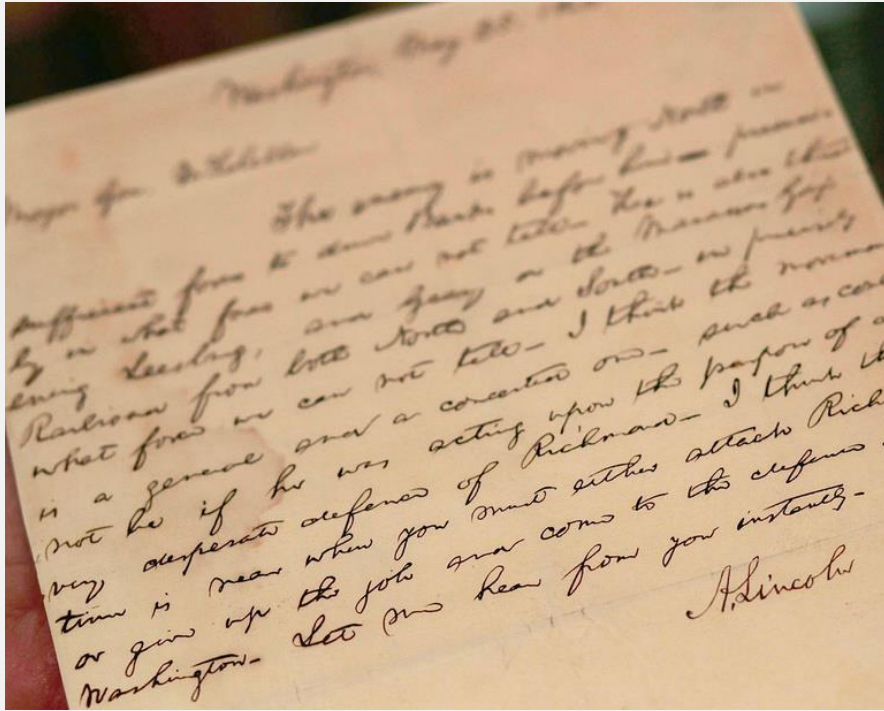 Washington, May 25. 18
Major Gen. McClellan
The enemy is moving North in
sufficient force to drive Banks before him — precise
ly in what force we can not tell. He is also threat
ening Leesburg, and Geary on the Manassas Gap
Railroad from both North and South — in precisely
what force we can not tell — I think the movement
is a general and a concerted one — such as could
not be if he was acting upon the purpose of a
very desperate defence of Richmond — I think the
time is near when you must either attack Rich
or give up the job and come to the defence
Washington — Let me hear from you instantly —
A. Lincoln